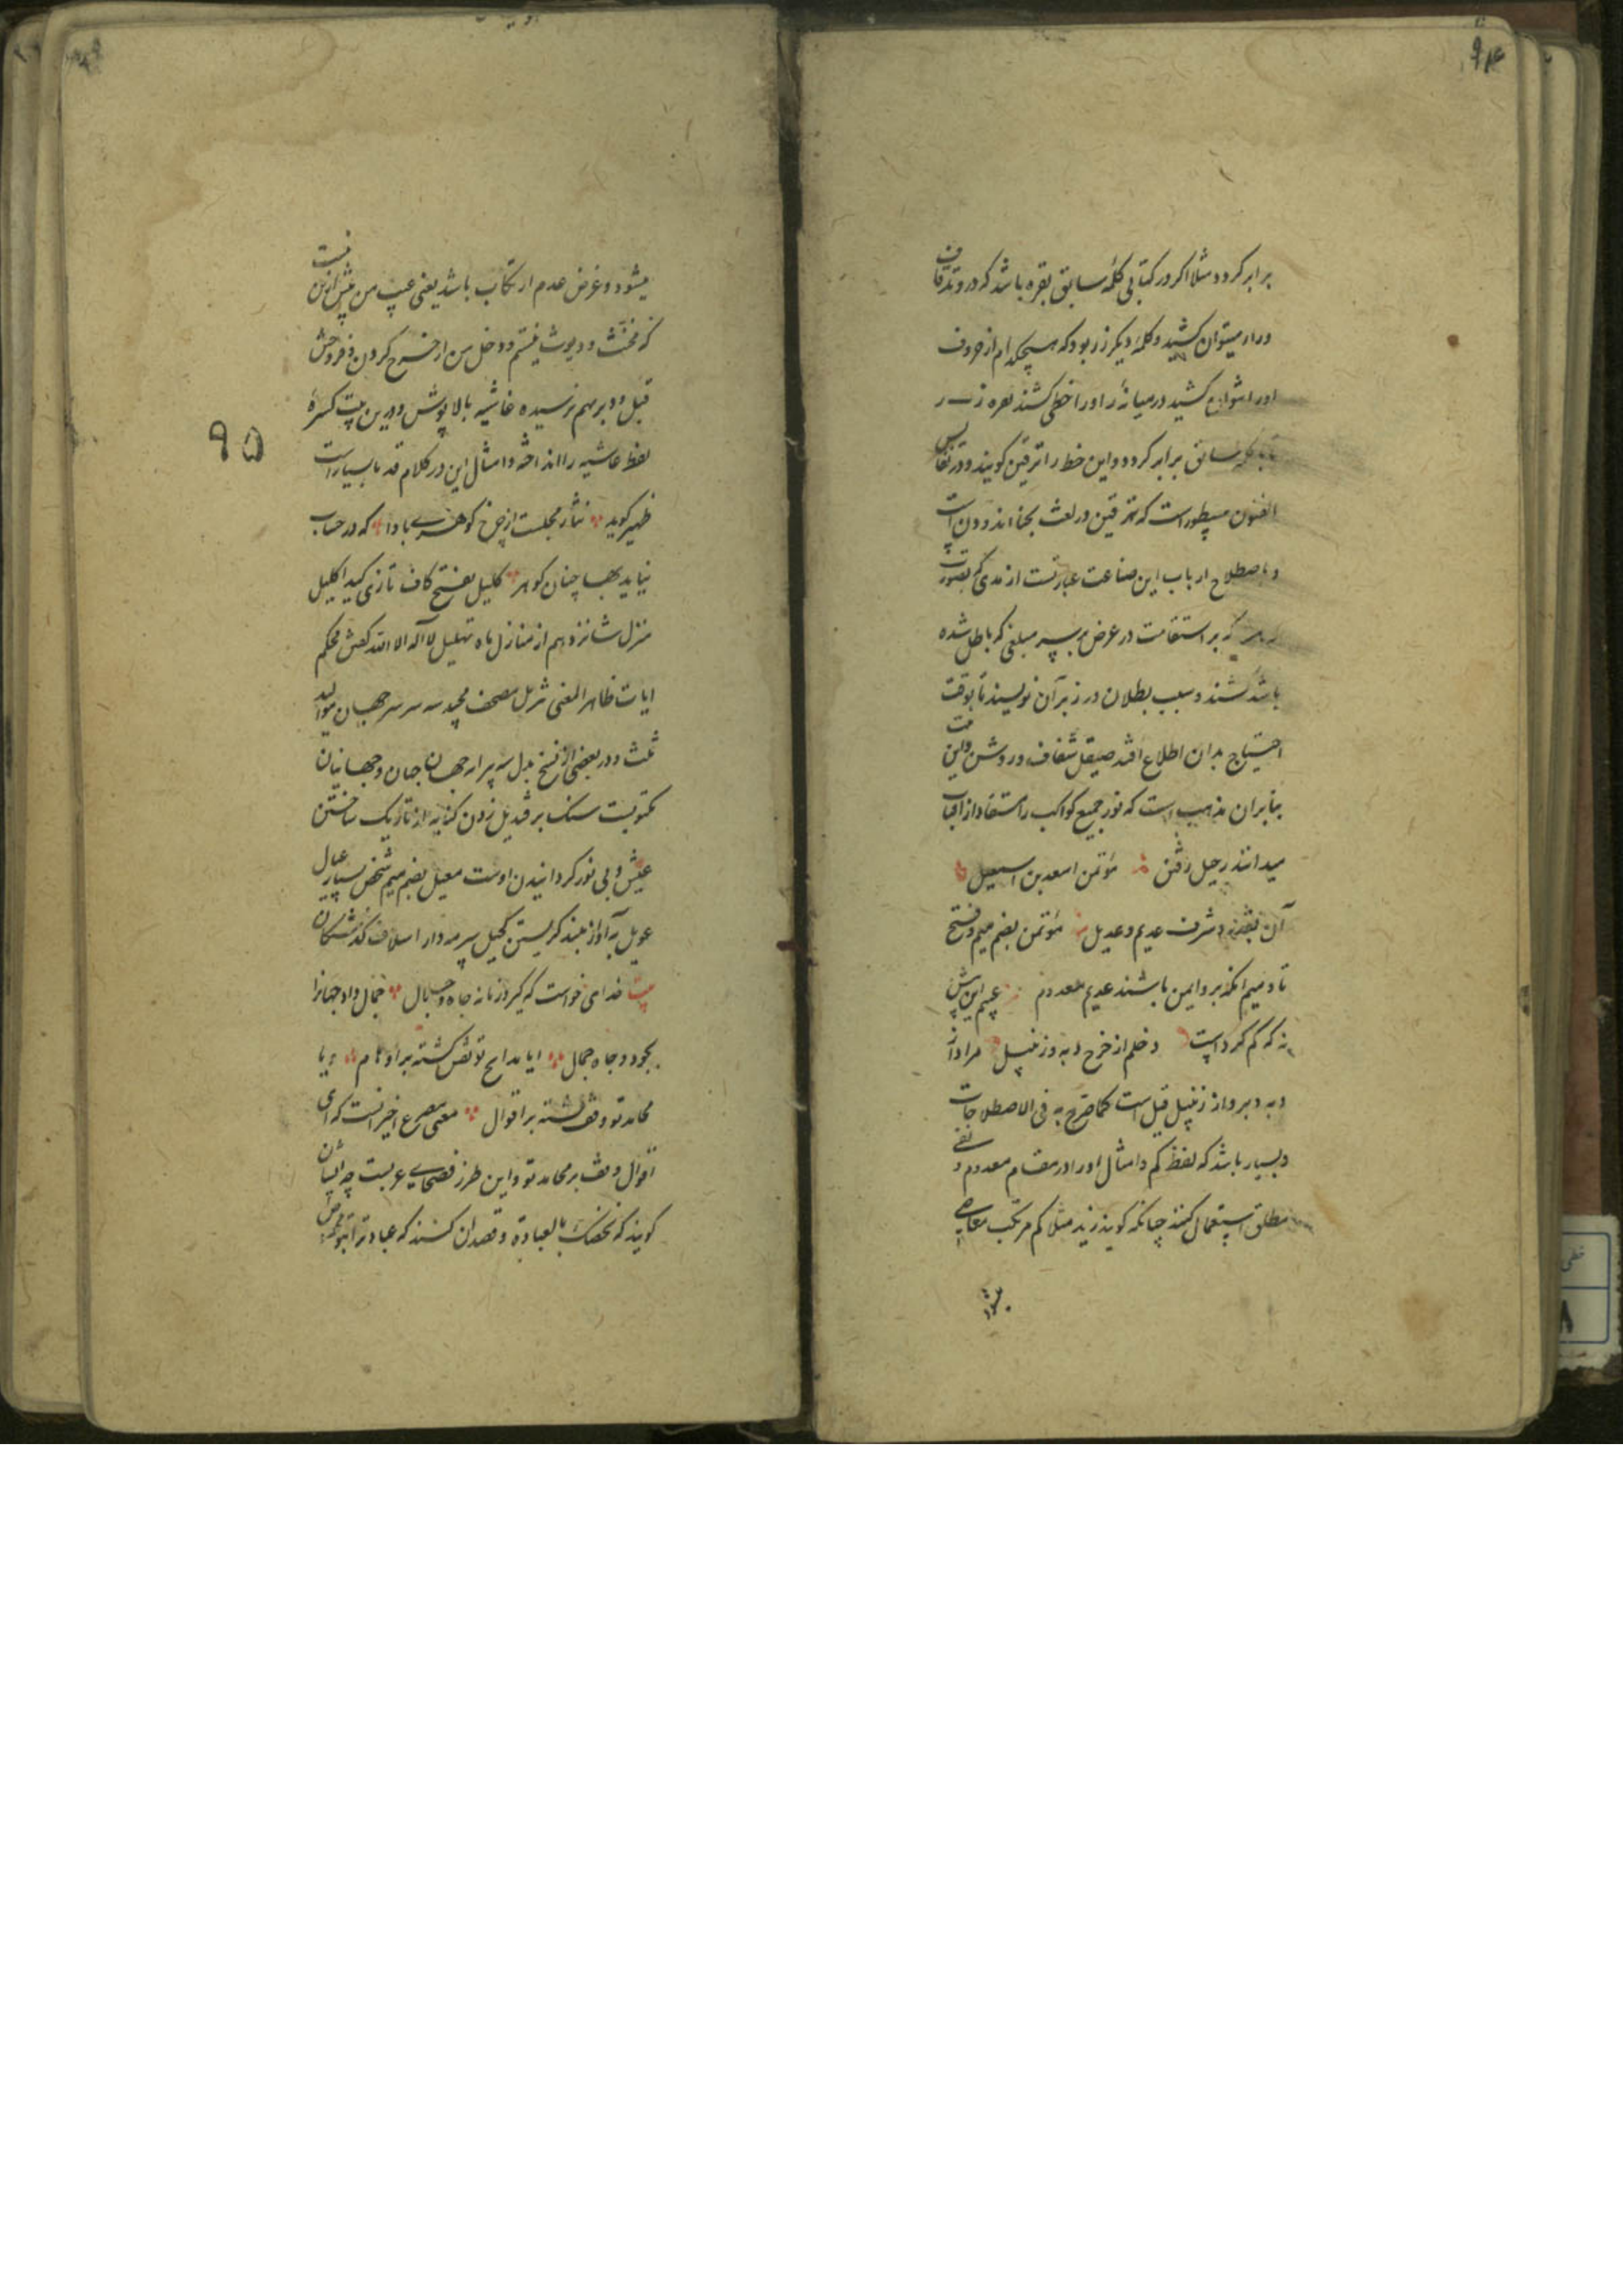 برابر کردد مثلا اکر در کتابی کلمه سابق نقره باشد که در و تد قاف
ورا را میتوان کشید و کلمه دیکر زر بود که هیچکدام از حروف
اورا نتوان کشید در میانه را و را خطی کشند نقره ز ر
تا با کلمه سابق برابر کردد و این خط را ترقین کویند و در نفایس
الفنون مسطور است که ترقین در لغت بحنا اندودن است
و باصطلاح ارباب این صناعت عبارتست از مدی که بصورت
بر استقامت در عرض بر سر مبلغی که باطل شده
باشد کشند و سبب بطلان در زیر آن نویسند تا بوقت
احتیاج بدان اطلاع افتد صیقل شفاف و روشن و این
بنابران مذهب است که نور جمیع کواکب را مستفاد از آفتاب
میدانند رحیل رفتن مؤتمن اسعد بن اسمعیل
آن بقدر و شرف عدیم و عدیل مؤتمن بضم میم و فتح
تا و میم انکه بر و ایمن باشند عدیم معدوم عیبم این پیش
نه که کم کرد است دخلم از خرج دبه و زنبیل مراد از
دبه دبر و از زنبیل قبل است کما صرح به فی الاصطلاحات
و بسیار باشد که لفظ کم و امثال او را در مقام معدوم و نفی
مطلق استعمال کنند چنانکه کویند زید مثلا کم مرتکب معاصی
میشود
۹۴
میشود و غرض عدم ارتکاب باشد یعنی عیب من بیش ازین نیست
که مخنث و دیوث نیستم و دخل من از خرج کردن و فروختن
قبل و دبر بهم نرسیده غاشیه بالا پوش و درین بیت کسره
لفظ غاشیه را انداخته و امثال این در کلام قدما بسیار است
ظهیر کوید نثار مجلست از چرخ کوهری بادا که در حساب
نیاید بهاء چنان کوهر کلیل بفتح کاف تازی کند اکلیل
منزل شانزدهم از منازل ماه تهلیل لا اله الا الله کفتن محکم
ایات ظاهر المعنی تنزیل مصحف مجید سه سر سر جهان موالید
ثلث و در بعضی از نسخ بدل سه پر از جهان جهان و جهانیان
مکتوبست سنک بر قندیل زدن کنایه از تاریک ساختن
عیش و بی نور کردانیدن اوست معیل بضم میم شخص بسیار عیال
عویل به آواز بلند کریستن کحیل سرمه دار اسلاف کذشتکان
بیت خدای خواست که کیرد زمانه جاه و جلال جمال داد جهانرا
بجود و جاه جمال ایا مدایح تو نقش کشته بر اوهام و یا
محامد تو وقف کشته بر اقوال معنی مصرع اخیر انست که ای
اقوال وقف بر محامد تو و این طرز فصحای عربست چه ایشان
کویند که نخصک بالعبادة و قصد ان کنند که عبادت را بتو مخصوص
۹۵